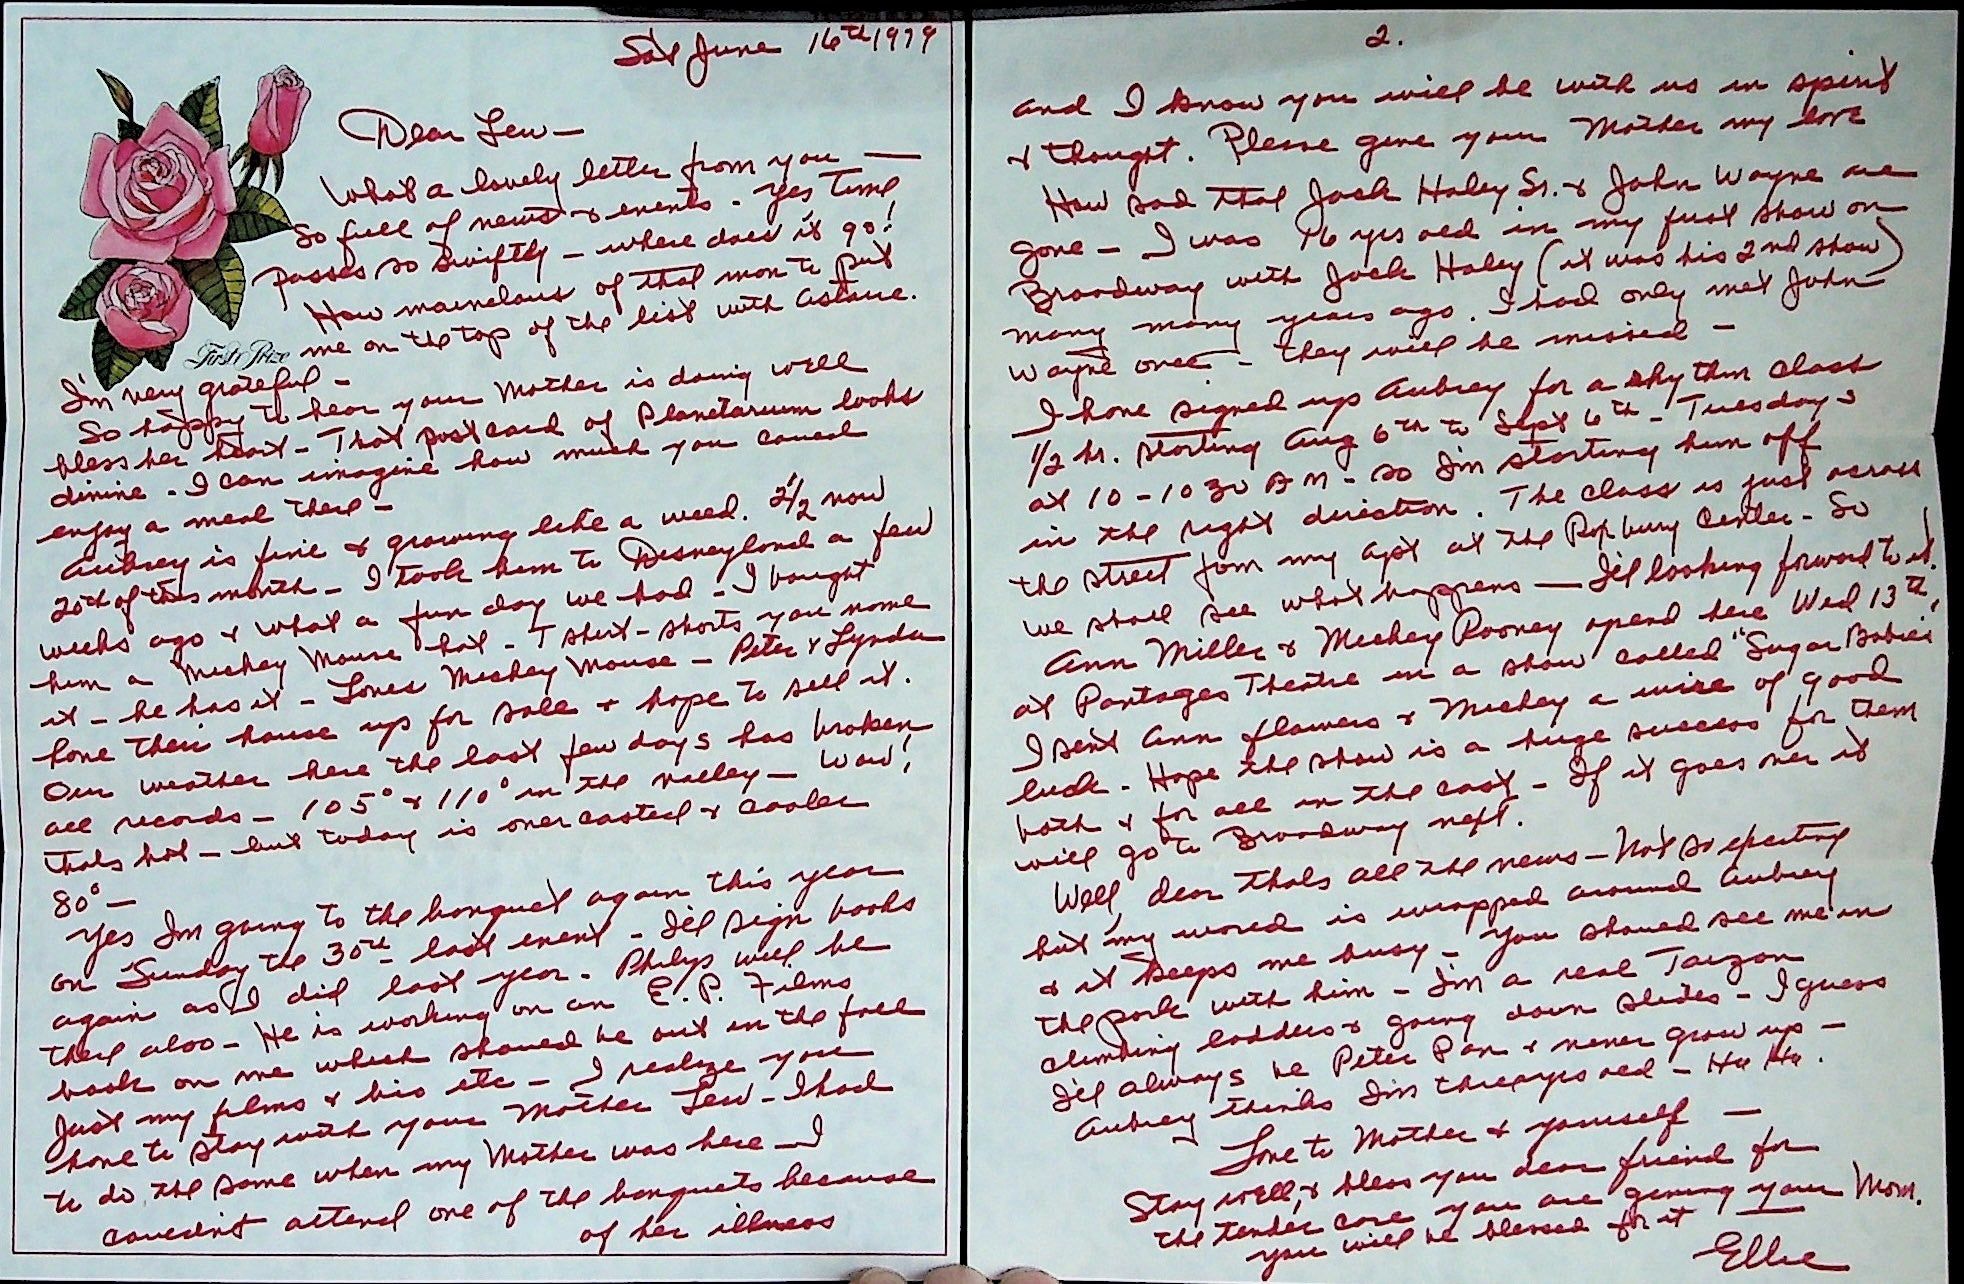 Sat June 16th 1979
Dear Lew —
What a lovely letter from you —
So full of news & events. Yes Time
passes so swiftly — where does it go!
How marvelous of that man to put
me on the top of the list with Astaire.
First Prize
I'm very grateful —
So happy to hear your Mother is doing well
bless her heart — That postcard of Planetarium looks
divine. I can imagine how much you could
enjoy a meal there —
Aubrey is fine & growing like a weed. 2½ now
20th of this month — I took him to Disneyland a few
weeks ago & what a fun day we had — I bought
him a Mickey Mouse hat — T shirt — shorts you name
it — he has it — Loves Mickey Mouse — Peter & Lynda
have their house up for sale & hope to sell it.
Our weather here the last few days has broken
all records — 105° & 110° in the valley — Wow!
thats hot — but today is over casted & cooler
80° —
Yes Im going to the banquet again this year
on Sunday the 30th last event — I'll sign books
again as I did last year. Philip will be
there also — He is working on an E. P. Films
book on me which should be out in the fall
Just my films & bio etc — I realize you
have to stay with your Mother Lew — I had
to do the same when my Mother was here — I
couldn't attend one of the banquets because
of her illness
2.
and I know you will be with us in spirit
& thought. Please give your Mother my love
How sad that Jack Haley Sr. & John Wayne are
gone — I was 16 yrs old in my first show on
Broadway with Jack Haley (it was his 2nd show)
many many years ago. I had only met John
Wayne once — they will be missed —
I have signed up Aubrey for a rhythm class
½ hr. starting Aug 6th to Sept 6th — Tuesdays
at 10 — 1030 AM — so I'm starting him off
in the right direction. The class is just across
the street from my apt at the Roxbury Center — So
we shall see what happens — I'll looking forward to it.
Ann Miller & Mickey Rooney opend here Wed 13th,
at Pantages Theatre in a show called "Sugar Babies"
I sent Ann flowers & Mickey a wire of good
luck. Hope the show is a huge success for them
both & for all in the cast — If it goes over it
will go to Broadway next.
Well, dear thats all the news — Not so exciting
but my world is wrapped around Aubrey
& it keeps me busy — You should see me in
the park with him — I'm a real Tarzan
climbing ladders & going down slides — I guess
I'll always be Peter Pan & never grow up —
Aubrey thinks I'm three yrs old — Ha Ha.
Love to Mother & yourself —
Stay well, & bless you dear friend for
the tender care you are giving your Mom.
you will be blessed for it —
Ellie